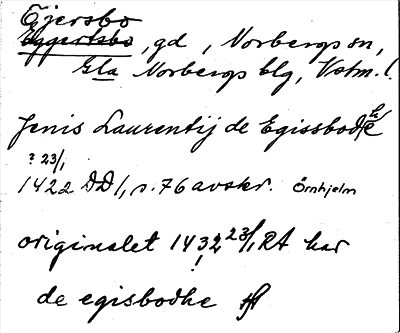 Ejersbo
Eggertsbo, gd, Norbergs sn,
Gla Norbergs blg, Vstm. l.
Jenis Laurentij de Egissbodhe
? 23/1
1422 DD 1, s. 76 avskr. Örnhjelm
originalet 1432 23/1 RA har
!
de egisbodhe